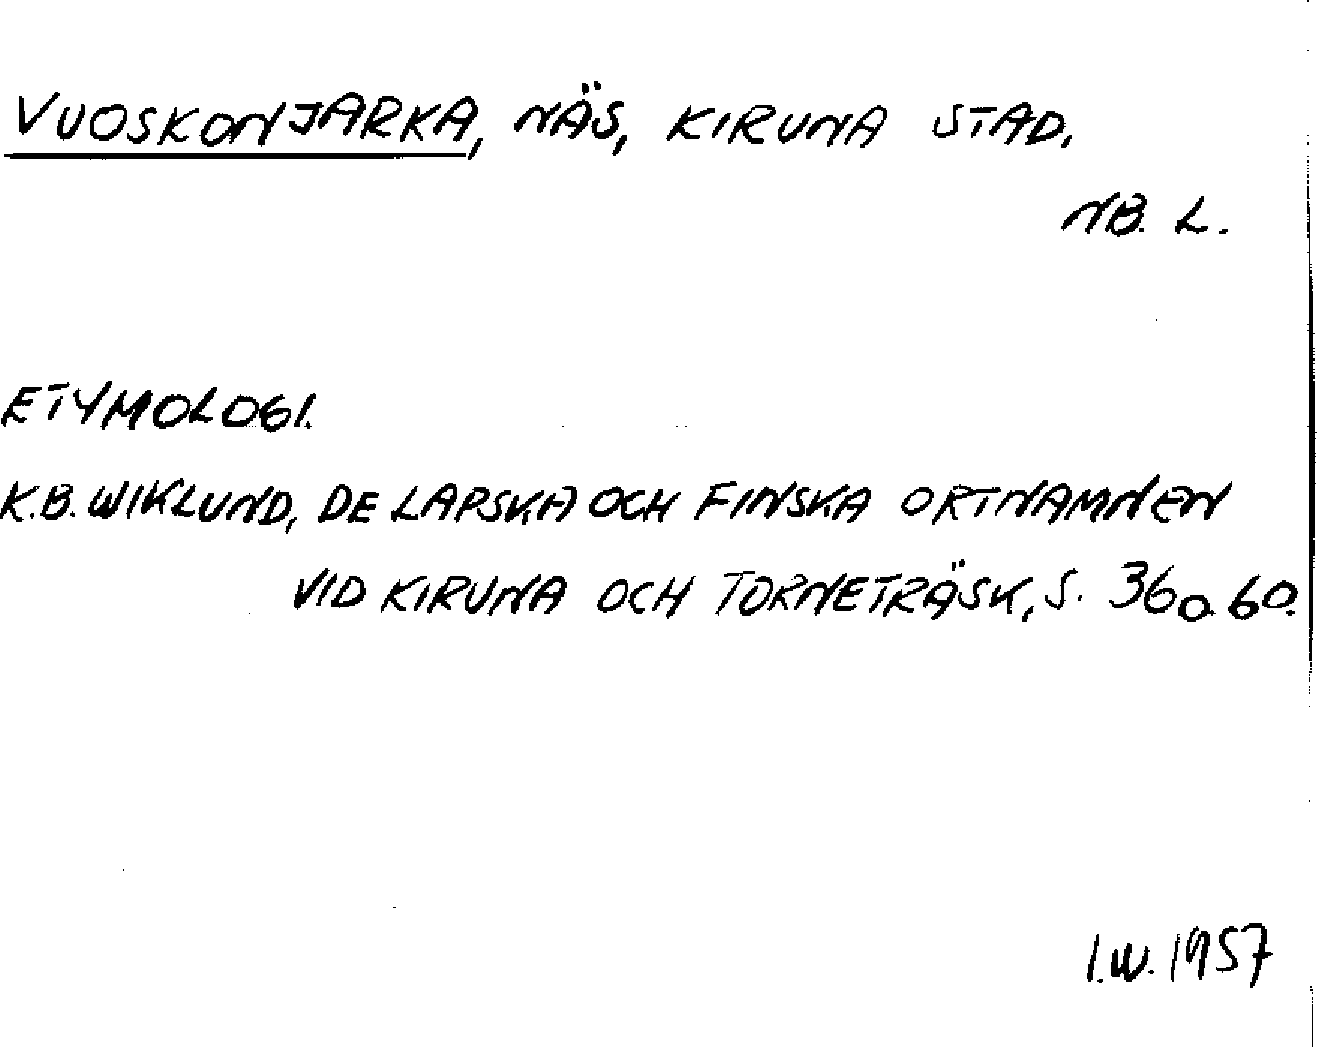 VUOSKONJARKA, NÄS, KIRUNA STAD.
NB. L.
ETYMOLOGI.
K.B. WIKLUND, DE LAPSKA OCH FINSKA ORTNAMNEN
VID KIRUNA OCH TORNETRÄSK, S. 36 o. 60.
I.W. 1957